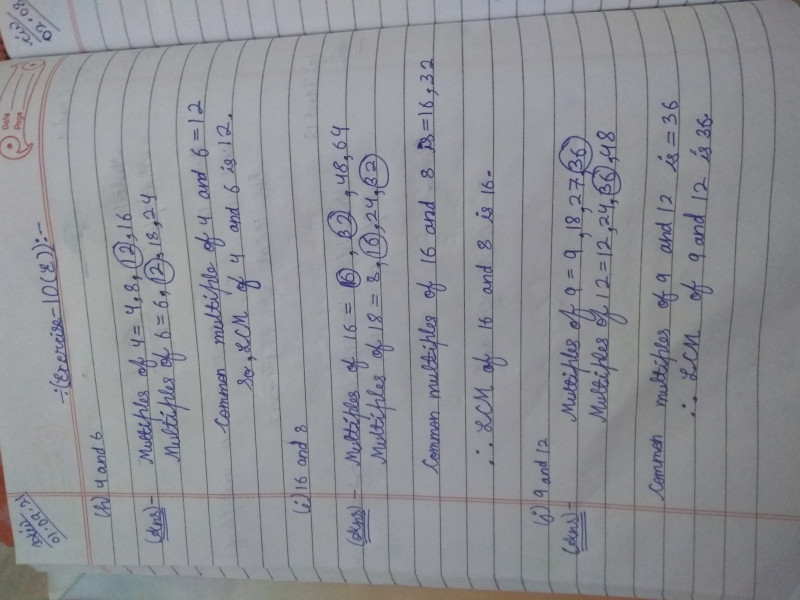 Date
Page
÷(Exercise-10(E)):-
(h) 4 and 6
(Ans)- Multiples of 4 = 4,8,12,16
Multiples of 6 = 6,12,18,24
Common multiple of 4 and 6 = 12
So, LCM of 4 and 6 is 12.
(i) 16 and 8
(Ans)- Multiples of 16 = 16, 32, 48, 64
Multiples of 18 = 8, 16, 24, 32
Common multiples of 16 and 8 is = 16, 32
∴ LCM of 16 and 8 is 16.
(j) 9 and 12
(Ans)- Multiples of 9 = 9, 18, 27, 36
Multiples of 12 = 12, 24, 36, 48
Common multiples of 9 and 12 is = 36
∴ LCM of 9 and 12 is 36.